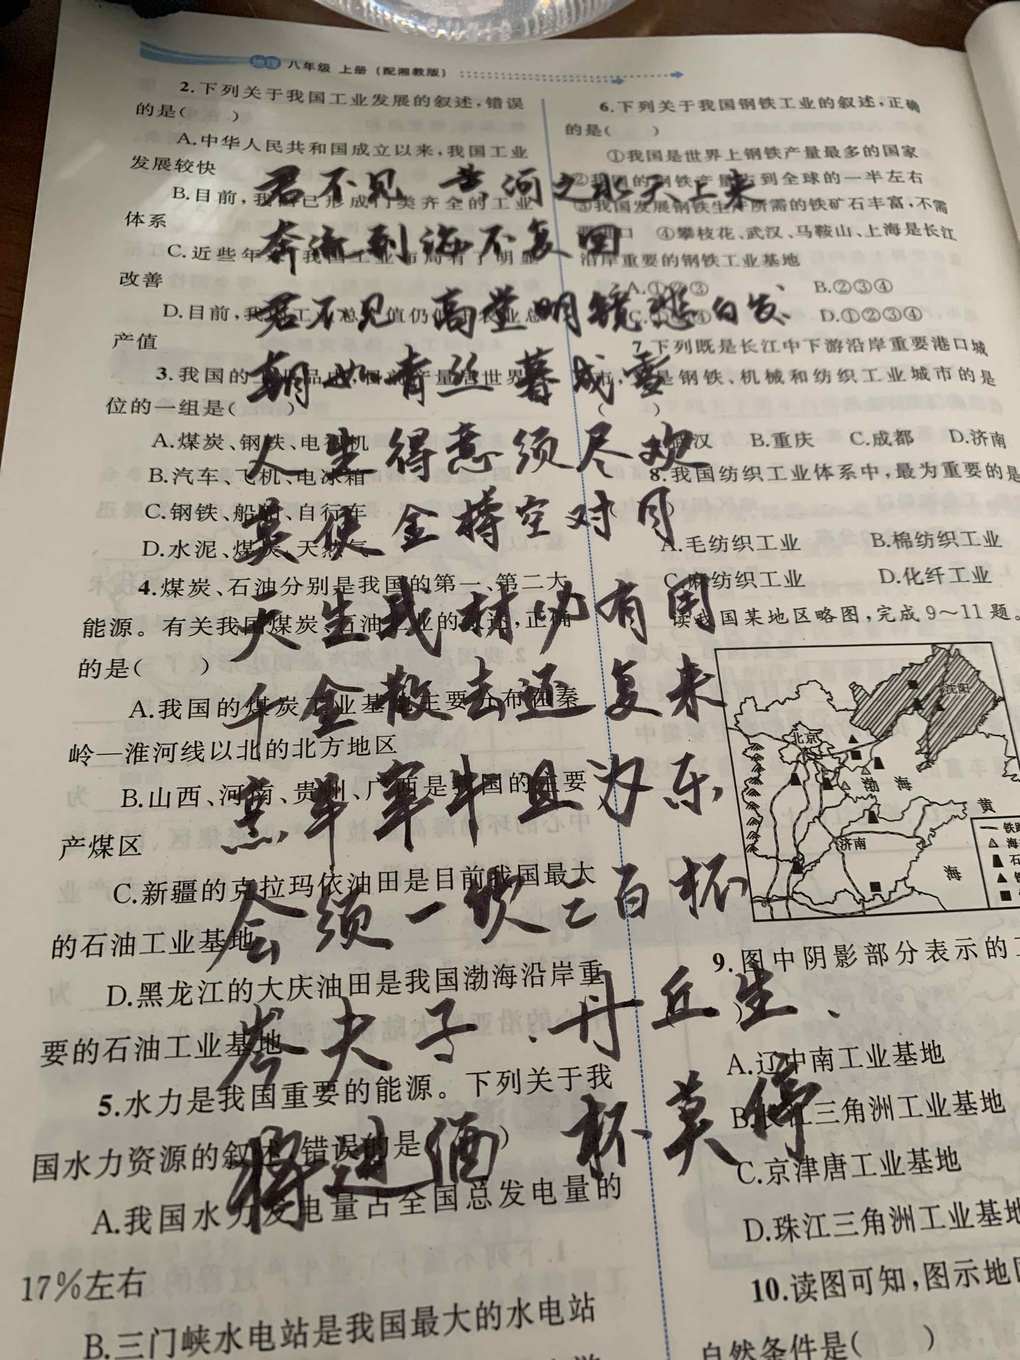 地理 八年级 上册 (配湘教版)
2.下列关于我国工业发展的叙述,错误
的是( )
A.中华人民共和国成立以来,我国工业
发展较快
B.目前,我国已形成门类齐全的工业
体系
C.近些年来,我国工业布局有了明显
改善
D.目前,我国工业总产值仍低于农业总
产值
3.我国的
位的一组是( )
A.煤炭、钢铁、电视机
B.汽车、飞机、电冰箱
C.钢铁、船舶、自行车
D.水泥、煤炭、天然气
4.煤炭、石油分别是我国的第一、第二大
能源。有关我国煤炭、石油工业的叙述,正确
的是( )
A.我国的煤炭工业基地主要分布在秦
岭—淮河线以北的北方地区
B.山西、河南、贵州、广西是我国的主要
产煤区
C.新疆的克拉玛依油田是目前我国最大
的石油工业基地
D.黑龙江的大庆油田是我国渤海沿岸重
要的石油工业基地
5.水力是我国重要的能源。下列关于我
国水力资源的叙述,错误的是( )
A.我国水力发电量占全国总发电量的
17%左右
B.三门峡水电站是我国最大的水电站
6.下列关于我国钢铁工业的叙述,正确
的是( )
①我国是世界上钢铁产量最多的国家
②我国的钢铁产量占到全球的一半左右
③我国发展钢铁生产所需的铁矿石丰富,不需
要进口 ④攀枝花、武汉、马鞍山、上海是长江
沿岸重要的钢铁工业基地
A.①②③ B.②③④
D.①②③④
7.下列既是长江中下游沿岸重要港口城
市,又是钢铁、机械和纺织工业城市的是
( )
A.武汉 B.重庆 C.成都 D.济南
8.我国纺织工业体系中,最为重要的是
A.毛纺织工业 B.棉纺织工业
C.麻纺织工业 D.化纤工业
读我国某地区略图,完成9～11题。
沈阳
北京
渤海
黄海
济南
铁路
海
石
9.图中阴影部分表示的工
A.辽中南工业基地
B.长江三角洲工业基地
C.京津唐工业基地
D.珠江三角洲工业基地
10.读图可知,图示地区
自然条件是( )
君不见 黄河之水天上来
奔流到海不复回
君不见 高堂明镜悲白发
朝如青丝暮成雪
人生得意须尽欢
莫使金樽空对月
天生我材必有用
千金散去还复来
烹羊宰牛且为乐
会须一饮三百杯
岑夫子、丹丘生、
将进酒 杯莫停